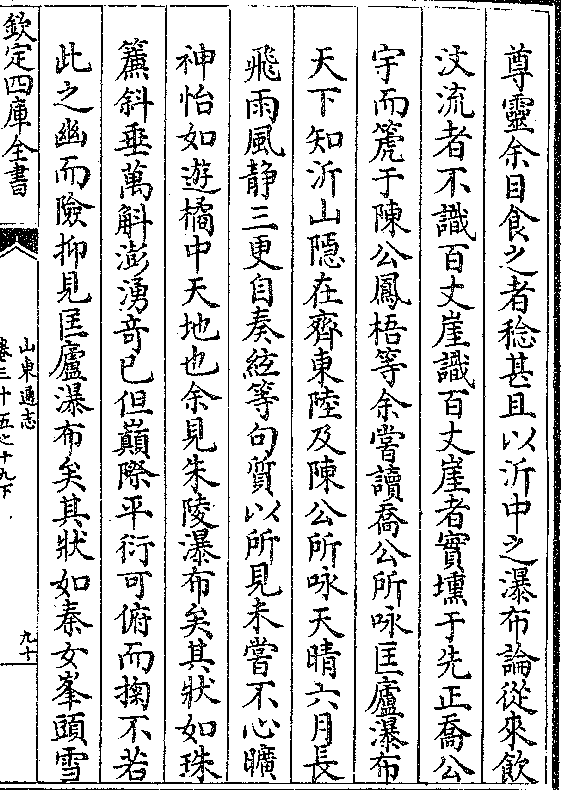 尊靈余目食之者稔甚且以沂中之瀑布論從來飲
汶流者不識百丈崖識百丈崖者實壎于先正喬公
宇而箎于陳公鳳梧等余嘗讀喬公所咏匡廬瀑布
天下知沂山隱在齊東陸及陳公所咏天晴六月長
飛雨風静三更自奏絃等句質以所見未嘗不心曠
神怡如遊橘中天地也余見朱陵瀑布矣其狀如珠
簾斜垂萬斛澎湧竒已但巔際平衍可俯而掬不若
此之幽而險抑見匡廬瀑布矣其狀如秦女峯頭雪
欽定四庫全書
山東通志
卷三十五之十九下
九十